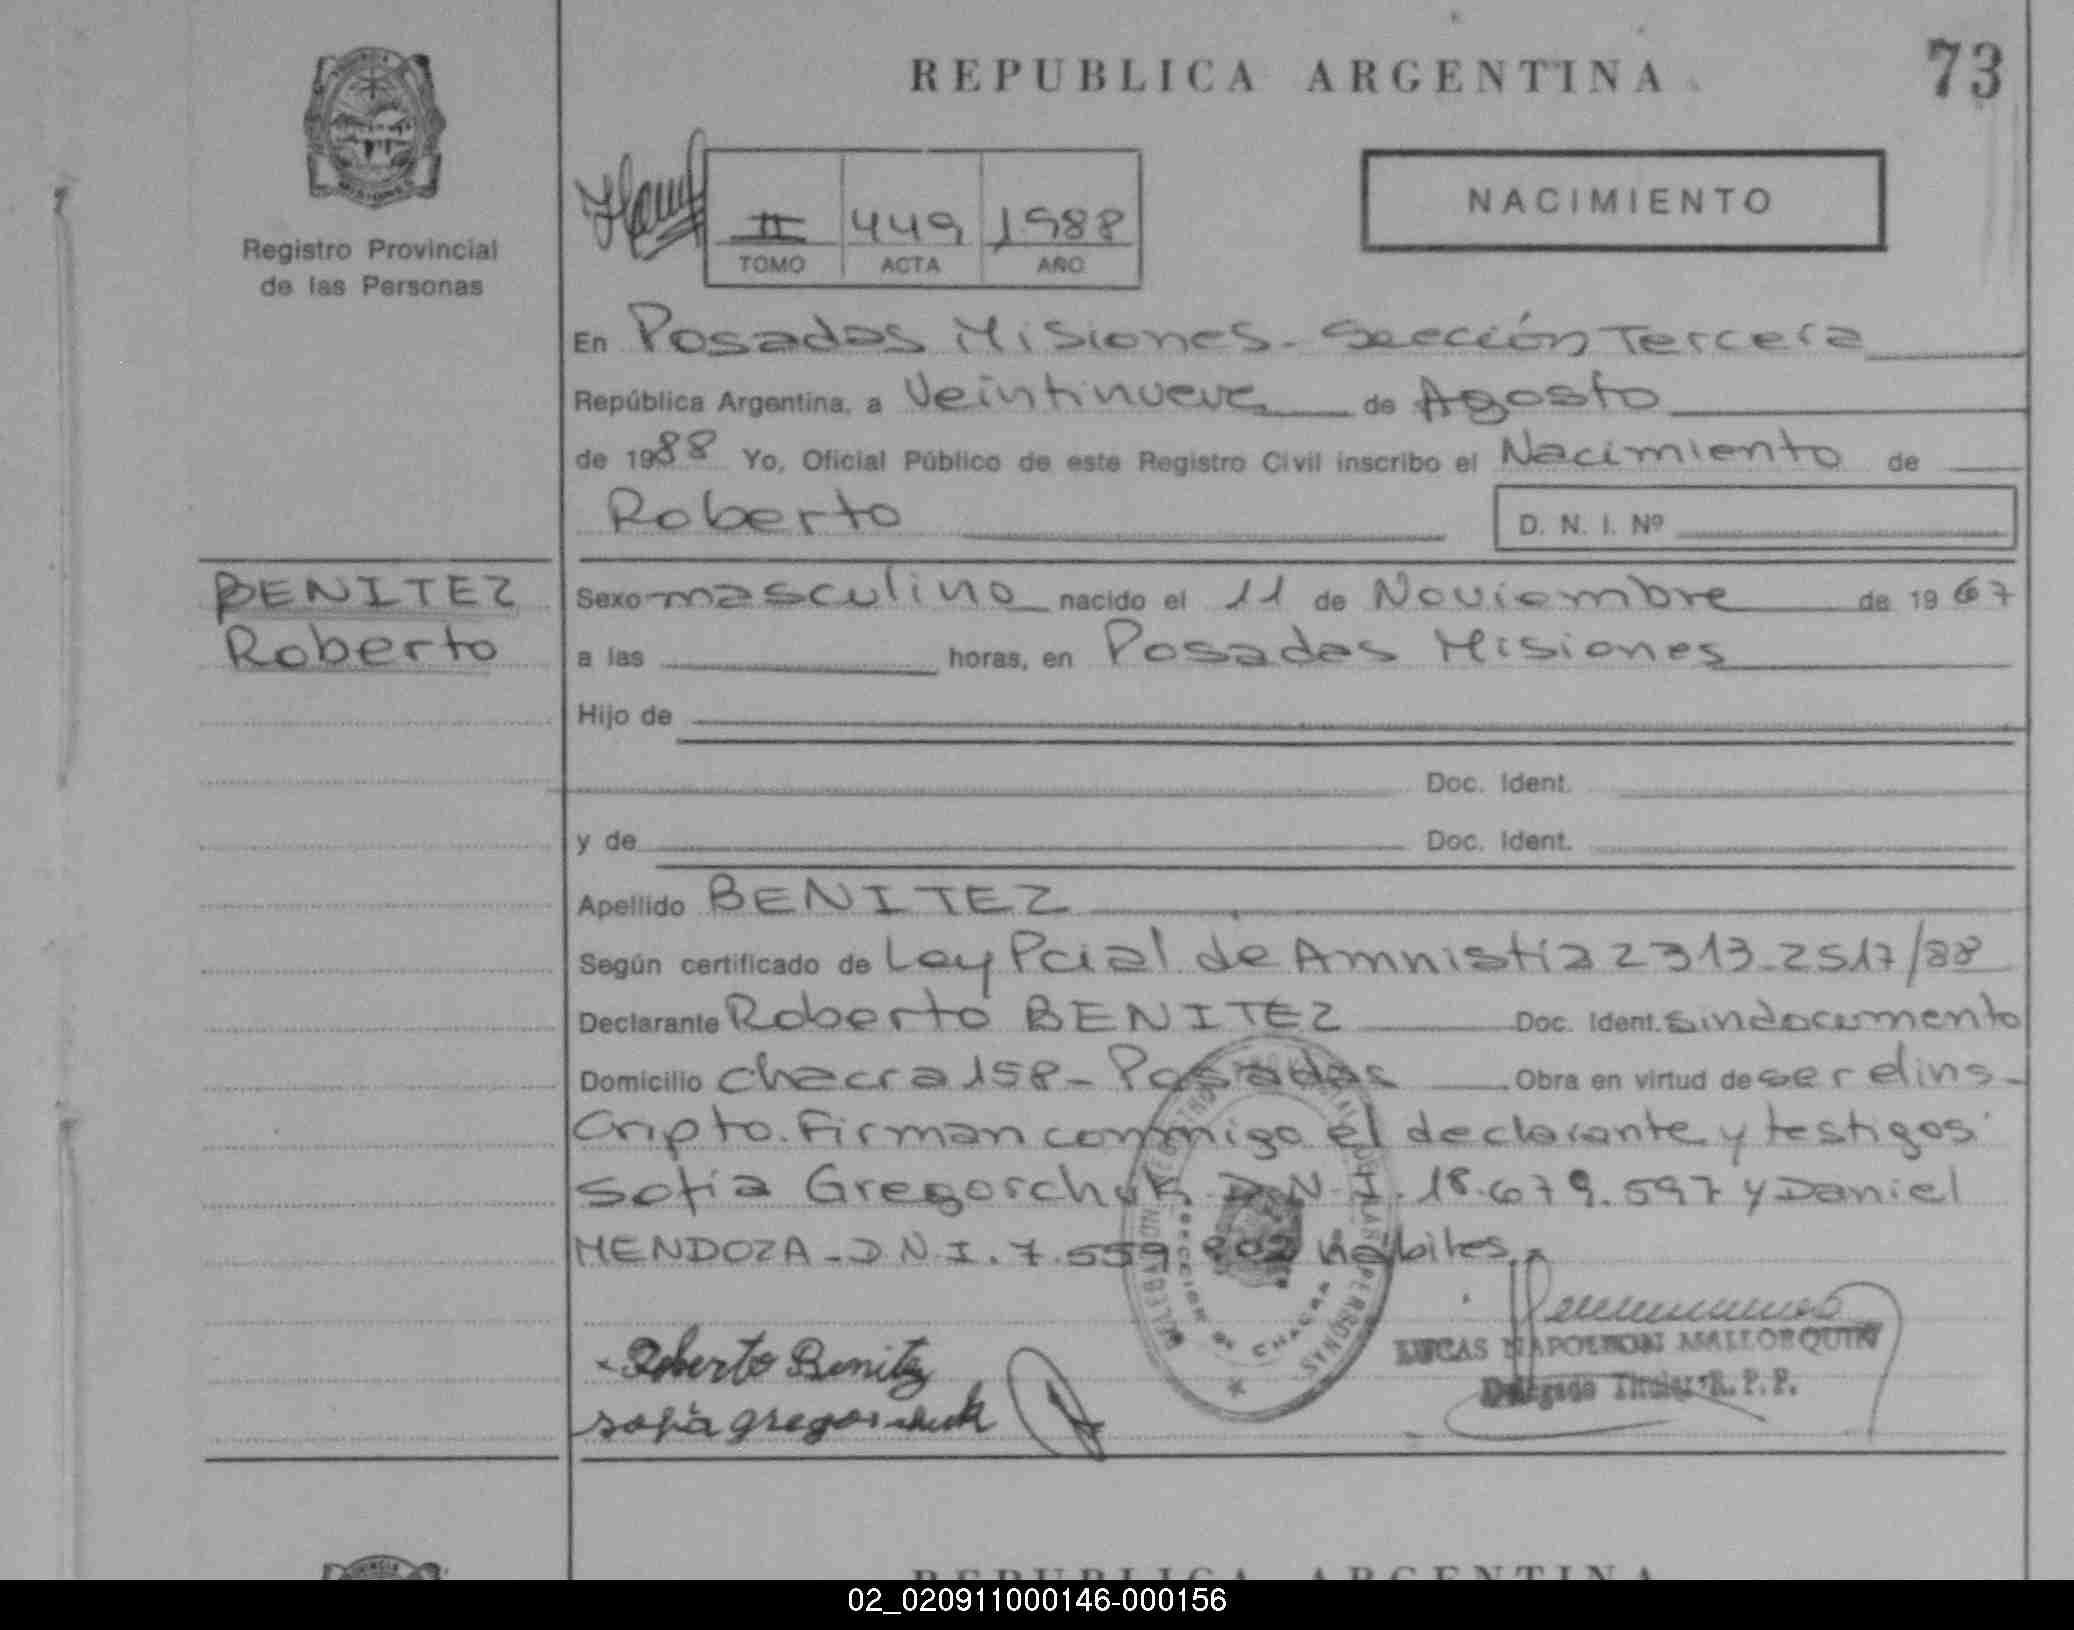 REPUBLICA ARGENTINA
73
Registro Provincial
de las Personas
II 449 1988
TOMO ACTA AÑO
NACIMIENTO
En Posadas Misiones - Sección Tercera
República Argentina, a Veintinueve de Agosto
de 1988 Yo, Oficial Público de este Registro Civil inscribo el Nacimiento de
Roberto
D. N. I. Nº
BENITEZ
Roberto
Sexo masculino nacido el 11 de Noviembre de 1967
a las horas, en Posadas Misiones
Hijo de
Doc. Ident.
y de Doc. Ident.
Apellido BENITEZ
Según certificado de Ley Pcial de Amnistía 2313-2517/88
Declarante Roberto BENITEZ Doc. Ident. sin documento
Domicilio chacra 158 - Posadas Obra en virtud de ser el ins-
cripto. Firman conmigo el declarante y testigos
Sofia Gregorchuk D.N.I. 18.679.597 y Daniel
MENDOZA - D.N.I. 7.559.802 hábiles
Roberto Benitez
sofia gregorchuk
LUCAS NAPOLEON MALLORQUIN
Delegado Titular R. P. P.
SECCION DE CHACRA
REPUBLICA ARGENTINA
02_020911000146-000156